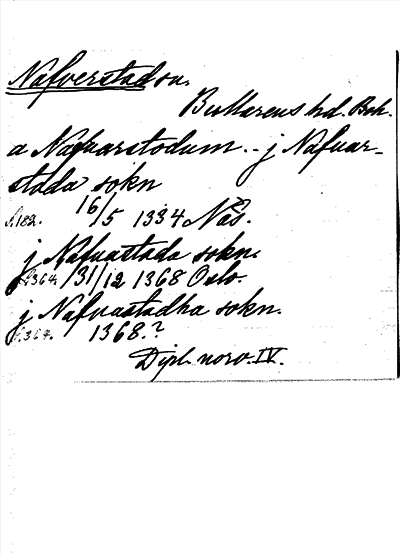 Nafverstad sn.
Bullarens hd. Boh.
a Nafuarstodum. - j Nafuar-
stada sokn
s. 182. 16/5 1334 Näs.
j Nafuastada sokn.
s. 364. 31/12 1368 Oslo.
j Nafuastadha sokn.
s. 364. 1368.?
Dipl. norv. IV.